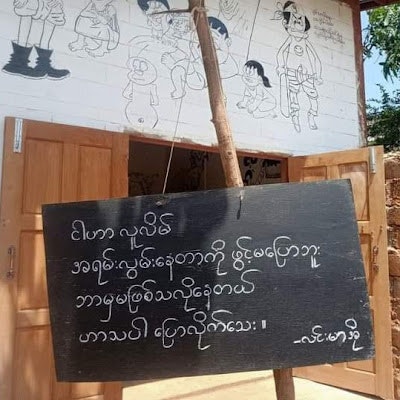 ငါဟာ လူလိမ်
အရမ်းလွမ်းနေတာကို ဖွင့်မပြောဘူး
ဘာမှမဖြစ်သလိုနေတယ်
ဟာသပါ ပြောလိုက်သေး ။
-လင်းမာအို